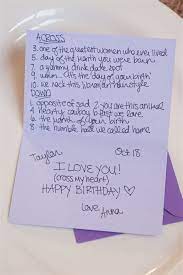 ACROSS
3. one of the greatest women who ever lived
5. day of the month you were born
7. a yummy drink date spot
9. umm.. it's the day of your birth
10. we rock this kind of style
DOWN
1. opposite of sad 2. you are this animal
4. hearty cowboy b fast we love
6. the month of your birth
8. the humble house we called home
Taylor Oct 18
I LOVE YOU!
(cross my heart)
HAPPY BIRTHDAY
Love,
Anna